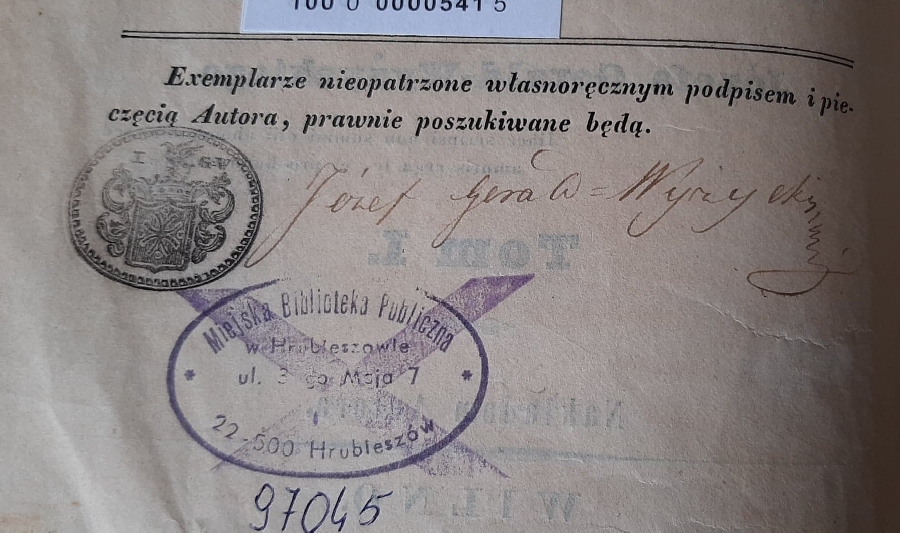 100 0 0000541 5
Exemplarze nieopatrzone własnoręcznym podpisem i pie-
częcią Autora, prawnie poszukiwane będą.
I G W
Józef Gerald = Wyżycki
Miejska Biblioteka Publiczna
w Hrubieszowie
* ul. 3-go Maja 7 *
22-500 Hrubieszów
97045
Tom I.
WILNO